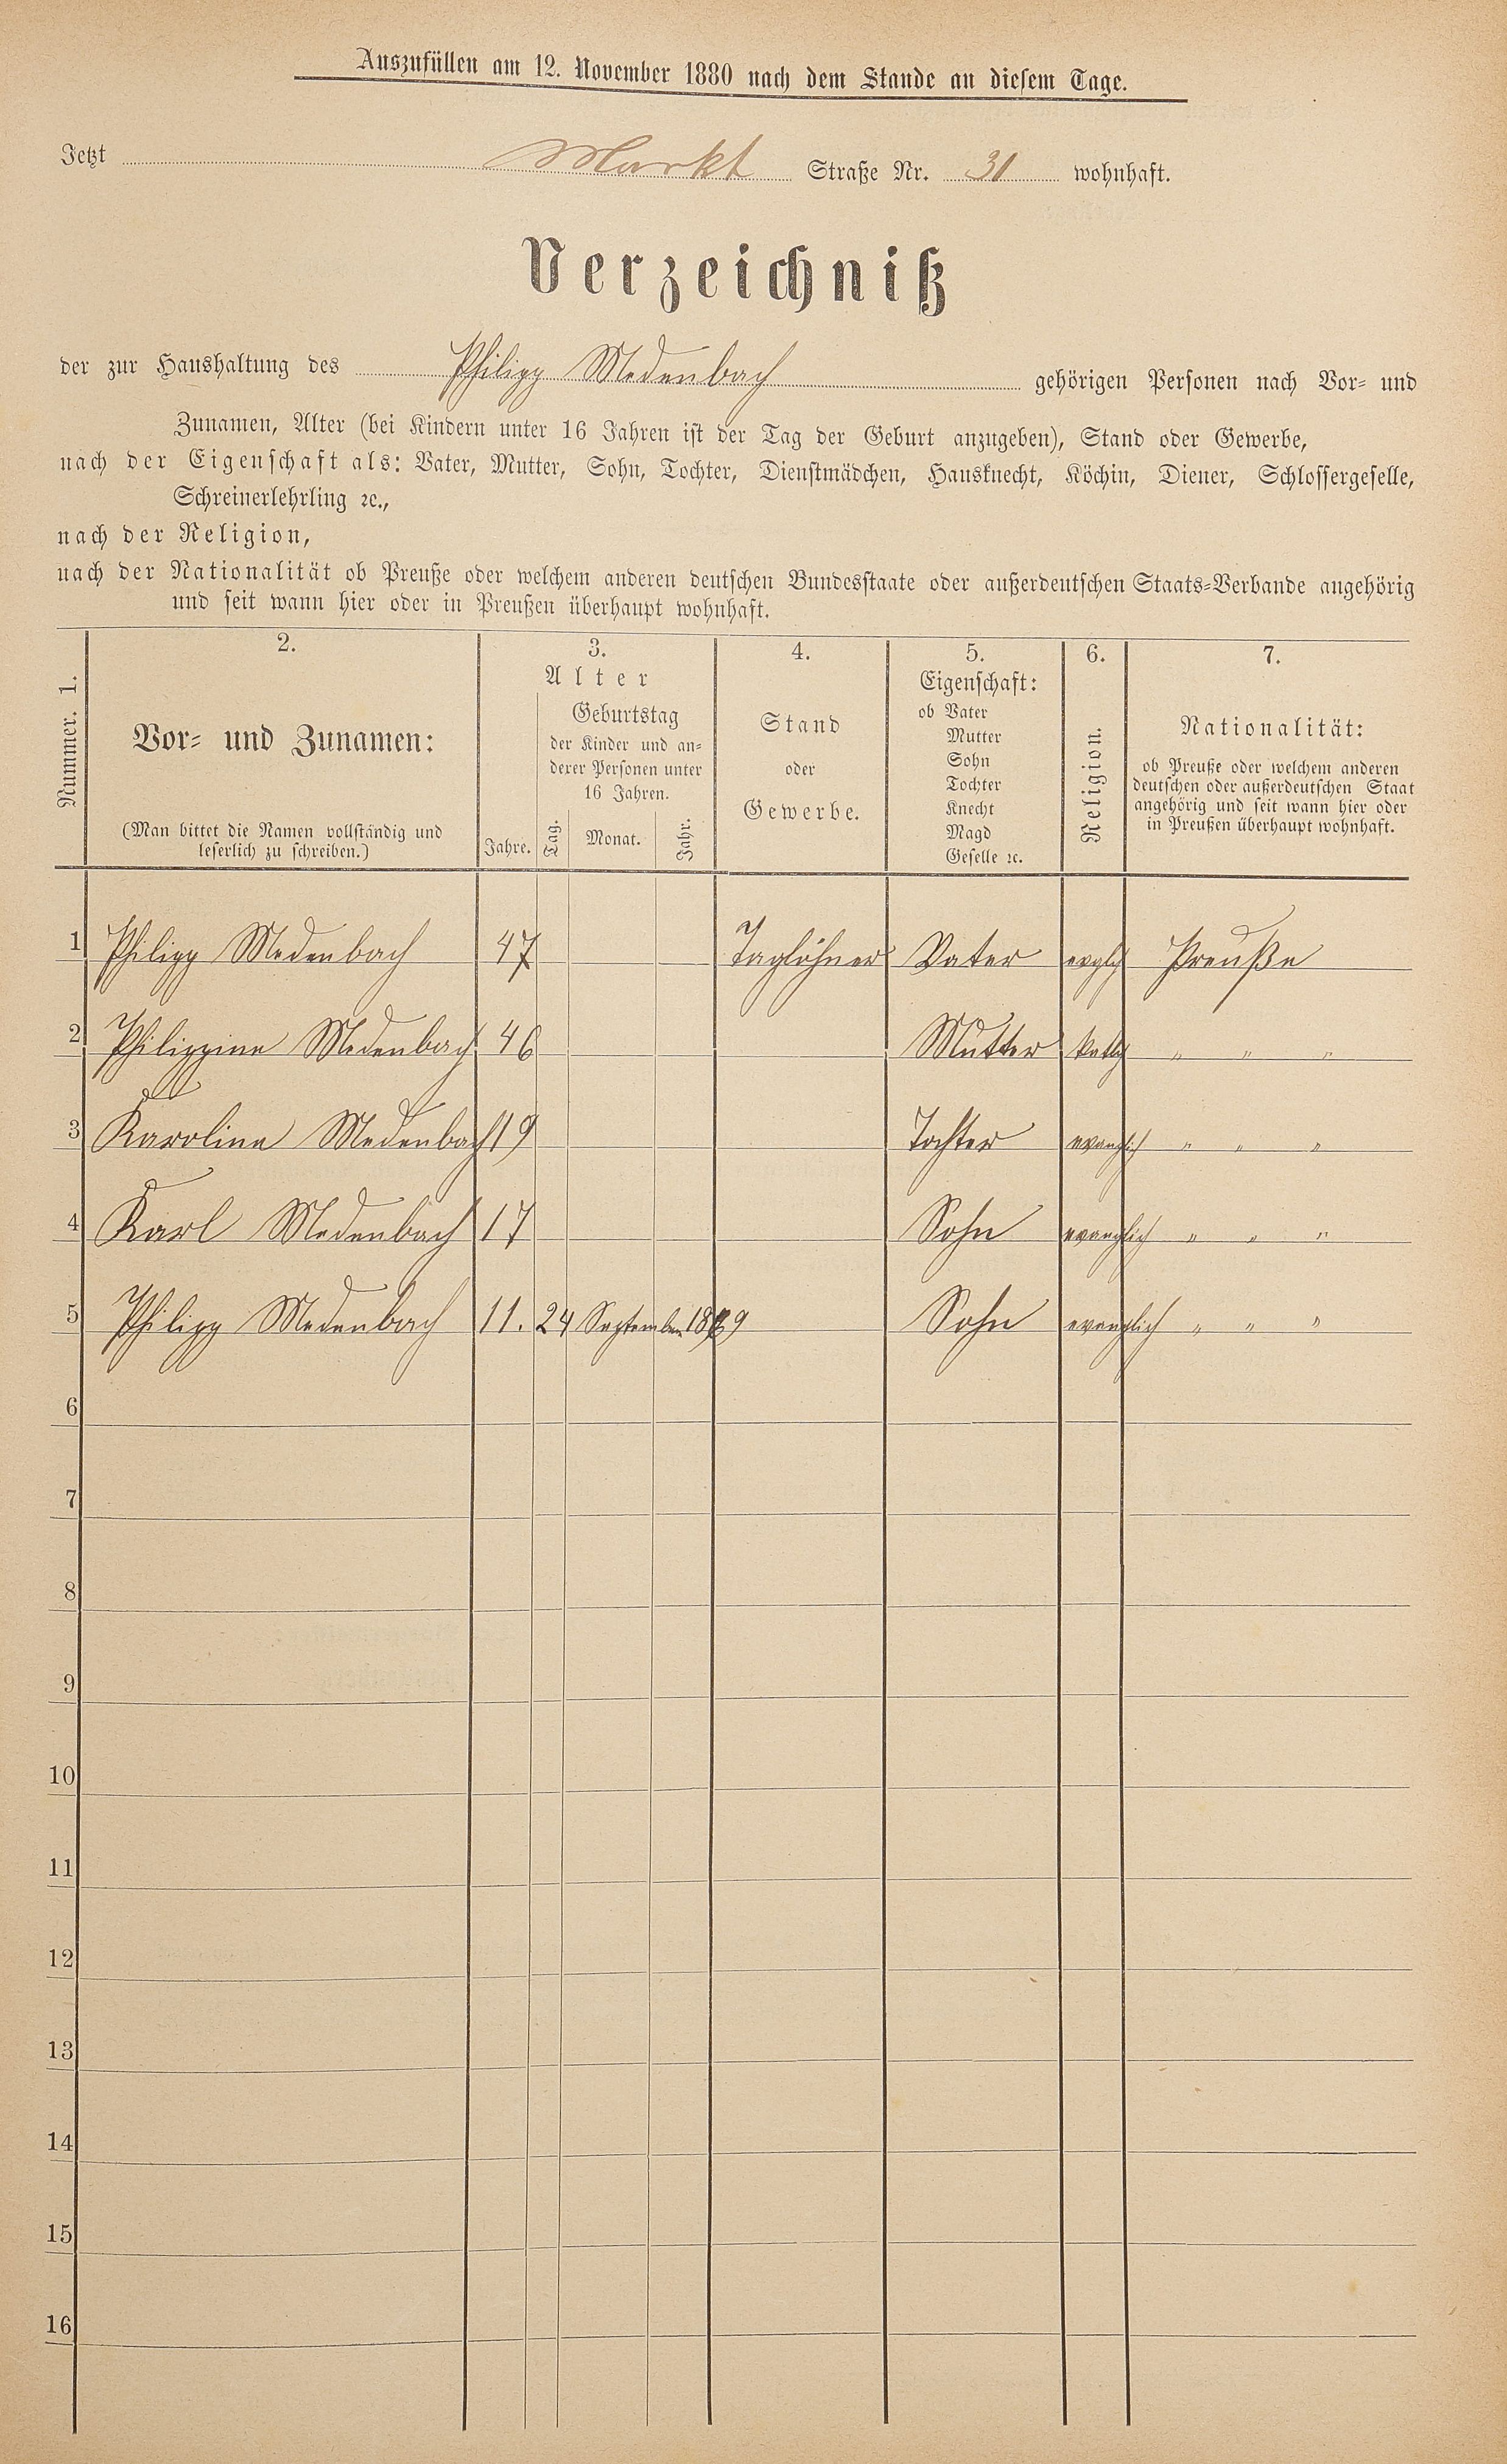 Auszufüllen am 12. November 1880 nach dem Stande an diesem Tage.
Jetzt Markt Straße Nr. 31 wohnhaft.
Verzeichniß
der zur Haushaltung des Philipp Medenbach gehörigen Personen nach Vor- und
Zunamen, Alter (bei Kindern unter 16 Jahren ist der Tag der Geburt anzugeben), Stand oder Gewerbe,
nach der Eigenschaft als: Vater, Mutter, Sohn, Tochter, Dienstmädchen, Hausknecht, Köchin, Diener, Schlossergeselle,
Schreinerlehrling ꝛc.,
nach der Religion,
nach der Nationalität ob Preuße oder welchem anderen deutschen Bundesstaate oder außerdeutschen Staats-Verbande angehörig
und seit wann hier oder in Preußen überhaupt wohnhaft.
Nummer. 1.
2.
Vor- und Zunamen:
(Man bittet die Namen vollständig und
leserlich zu schreiben.)
3.
Alter
Jahre.
Geburtstag
der Kinder und an-
derer Personen unter
16 Jahren.
Tag. Monat. Jahr.
4.
Stand
oder
Gewerbe.
5.
Eigenschaft:
ob Vater
Mutter
Sohn
Tochter
Knecht
Magd
Geselle ꝛc.
6.
Religion.
7.
Nationalität:
ob Preuße oder welchem anderen
deutschen oder außerdeutschen Staat
angehörig und seit wann hier oder
in Preußen überhaupt wohnhaft.
1 Philipp Medenbach 47 Taglöhner Vater evglch Preuße
2 Philippine Medenbach 46 Mutter kathl " " "
3 Karolina Medenbach 19 Tochter evanglich " " "
4 Karl Medenbach 17 Sohn evanglich " " "
5 Philipp Medenbach 11. 24 September 1869 Sohn evanglich " " "
6
7
8
9
10
11
12
13
14
15
16